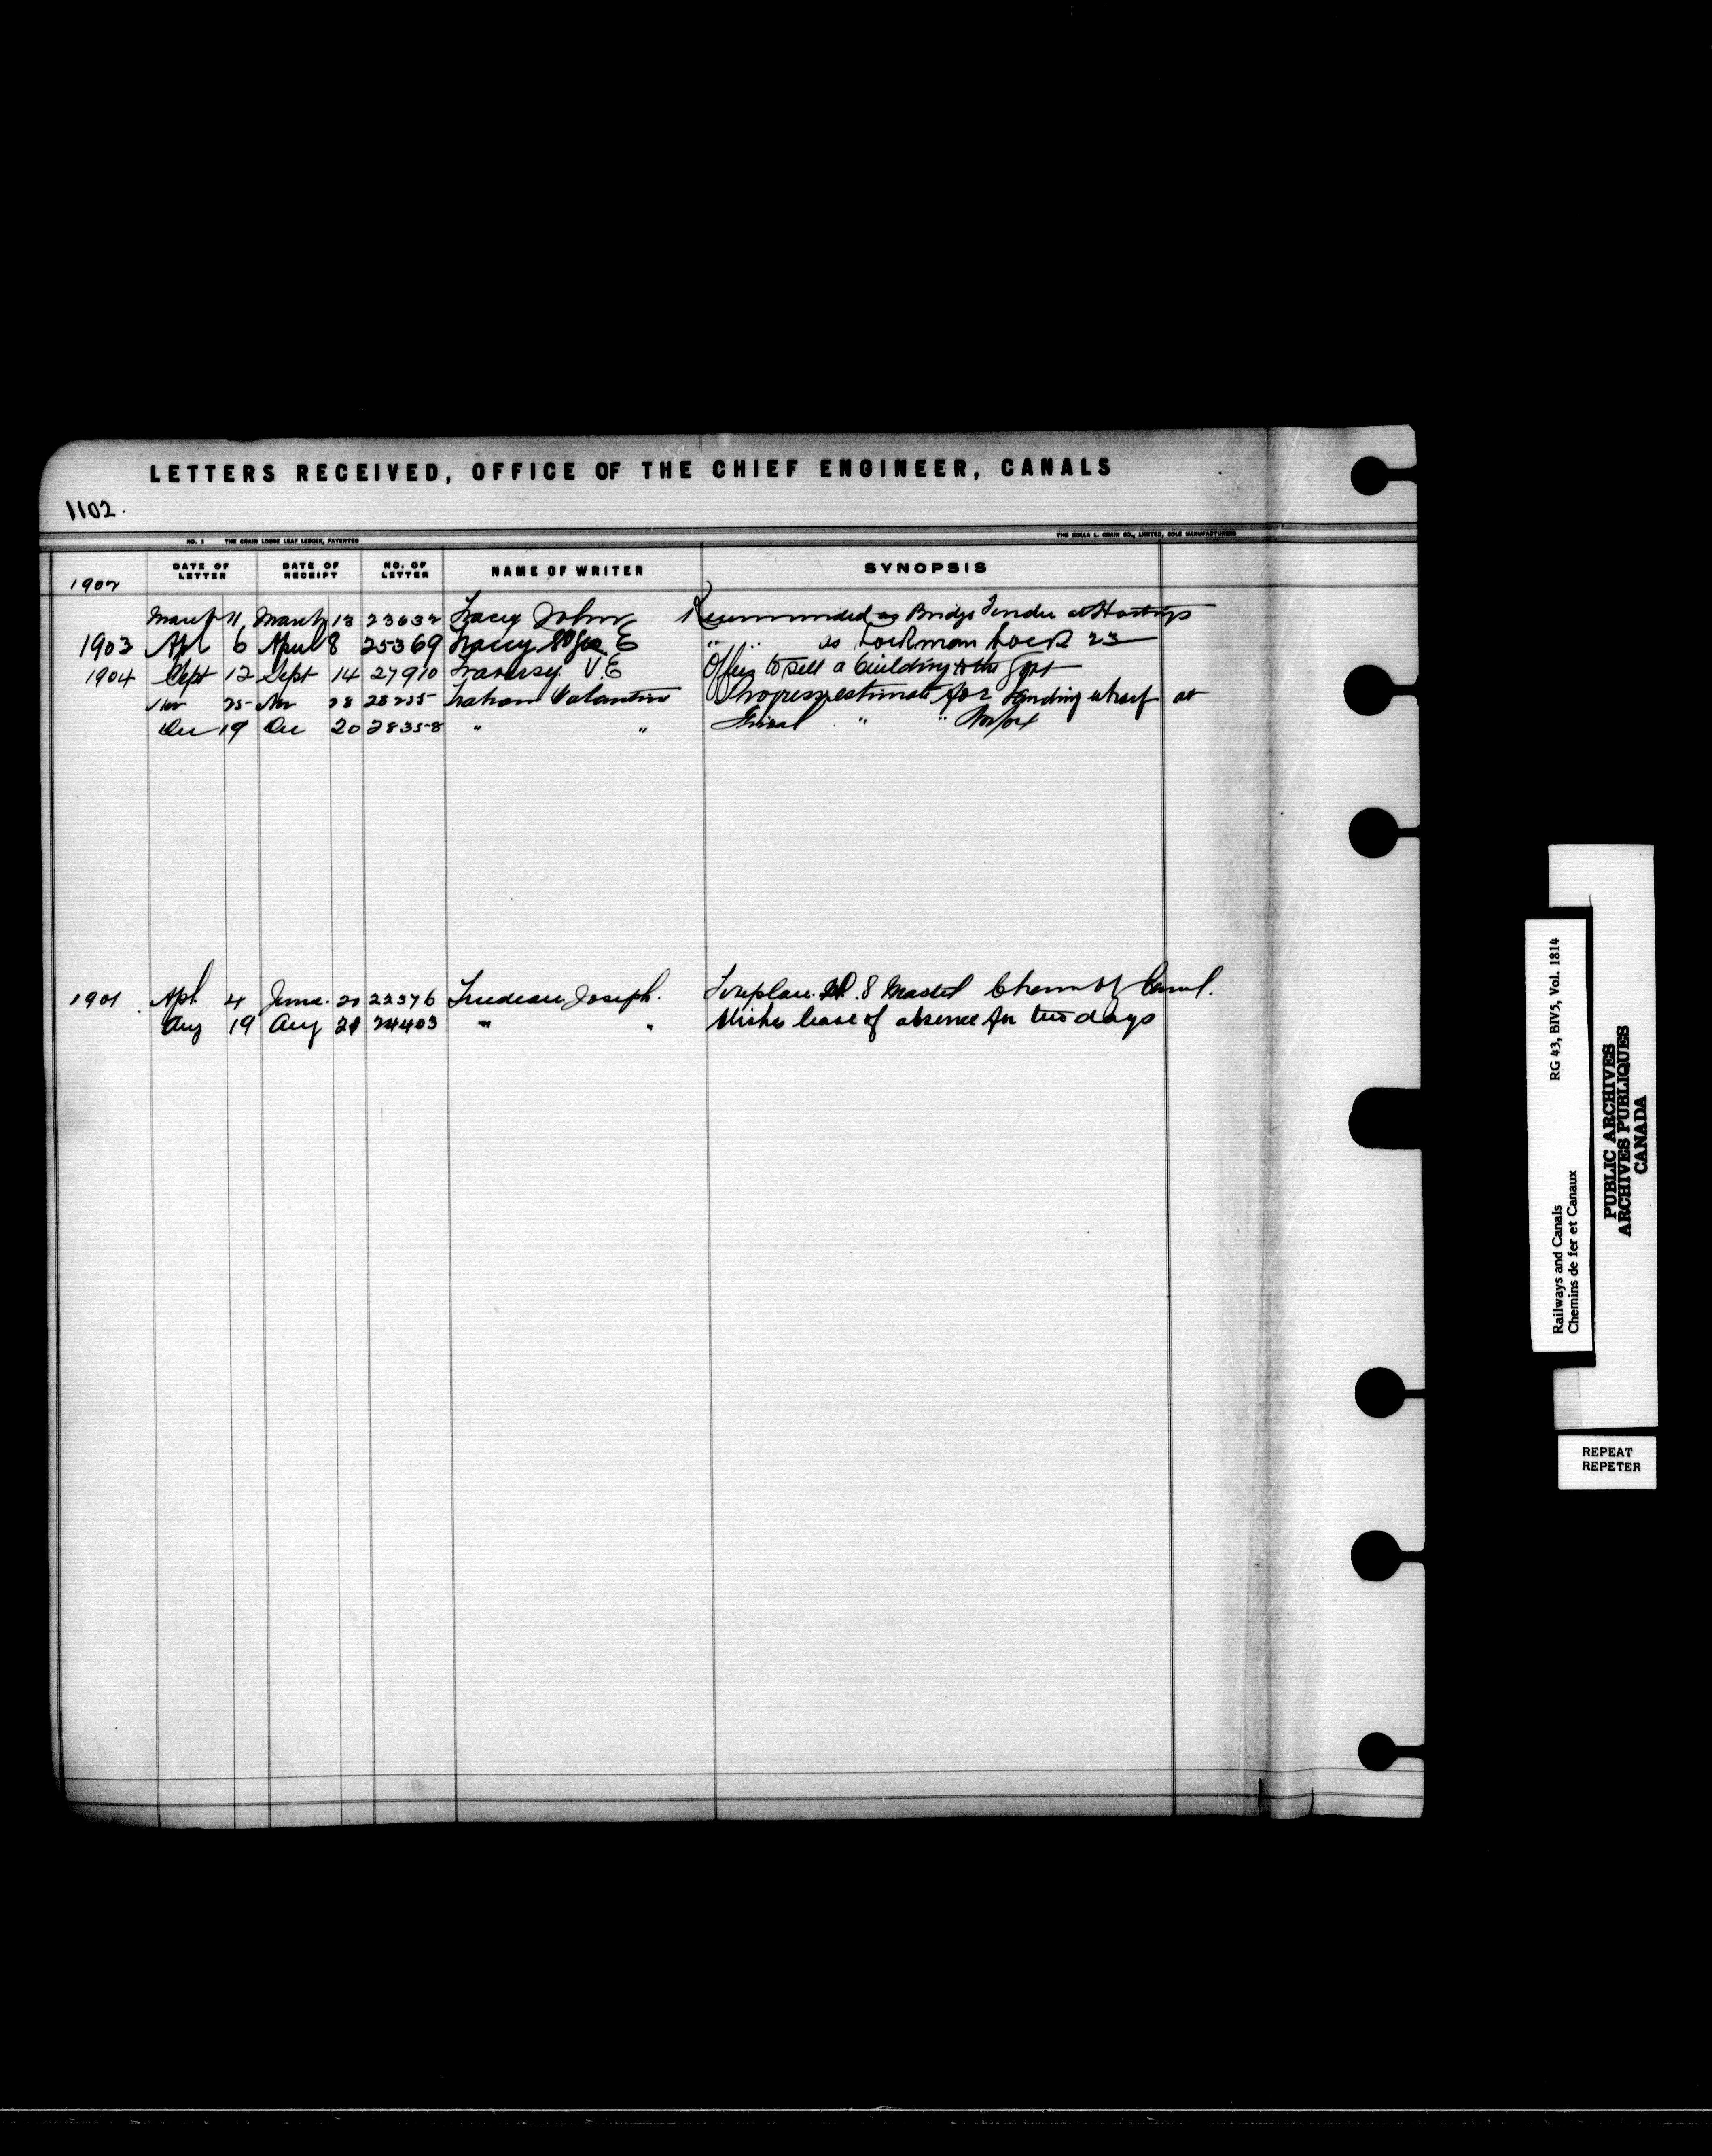 LETTERS RECEIVED, OFFICE OF THE CHIEF ENGINEER, CANALS
1102.
NO. 1 THE CRAIN LOOSE LEAF LEDGER, PATENTED THE ROLLA L. CRAIN CO., LIMITED, SOLE MANUFACTURERS
1902 DATE OF LETTER DATE OF RECEIPT NO. OF LETTER NAME OF WRITER SYNOPSIS
March 11, March 13 23632 Tracey John Recommended as Bridge Tender at Hastings
1903 Apl 6 April 8 25369 Tracey Geo. E " " as Lockman Lock 23
1904 Sept 12 Sept 14 27910 Traversy V.E Offers to sell a building to the Govt
Nov 25 Nov 28 28255 Trahan Valantine Progress estimate for Landing wharf at
Dec 19 Dec 20 28358 " " Final " "
1901 Apl. 4 June. 20 22376 Trudeau Joseph. To replace 8 Canal.
Aug 19 Aug 21 24403 " " Wishes leave of absence for two days
Railways and Canals RG 43, BIV5, Vol. 1814
Chemins de fer et Canaux
PUBLIC ARCHIVES
ARCHIVES PUBLIQUES
CANADA
REPEAT
REPETER